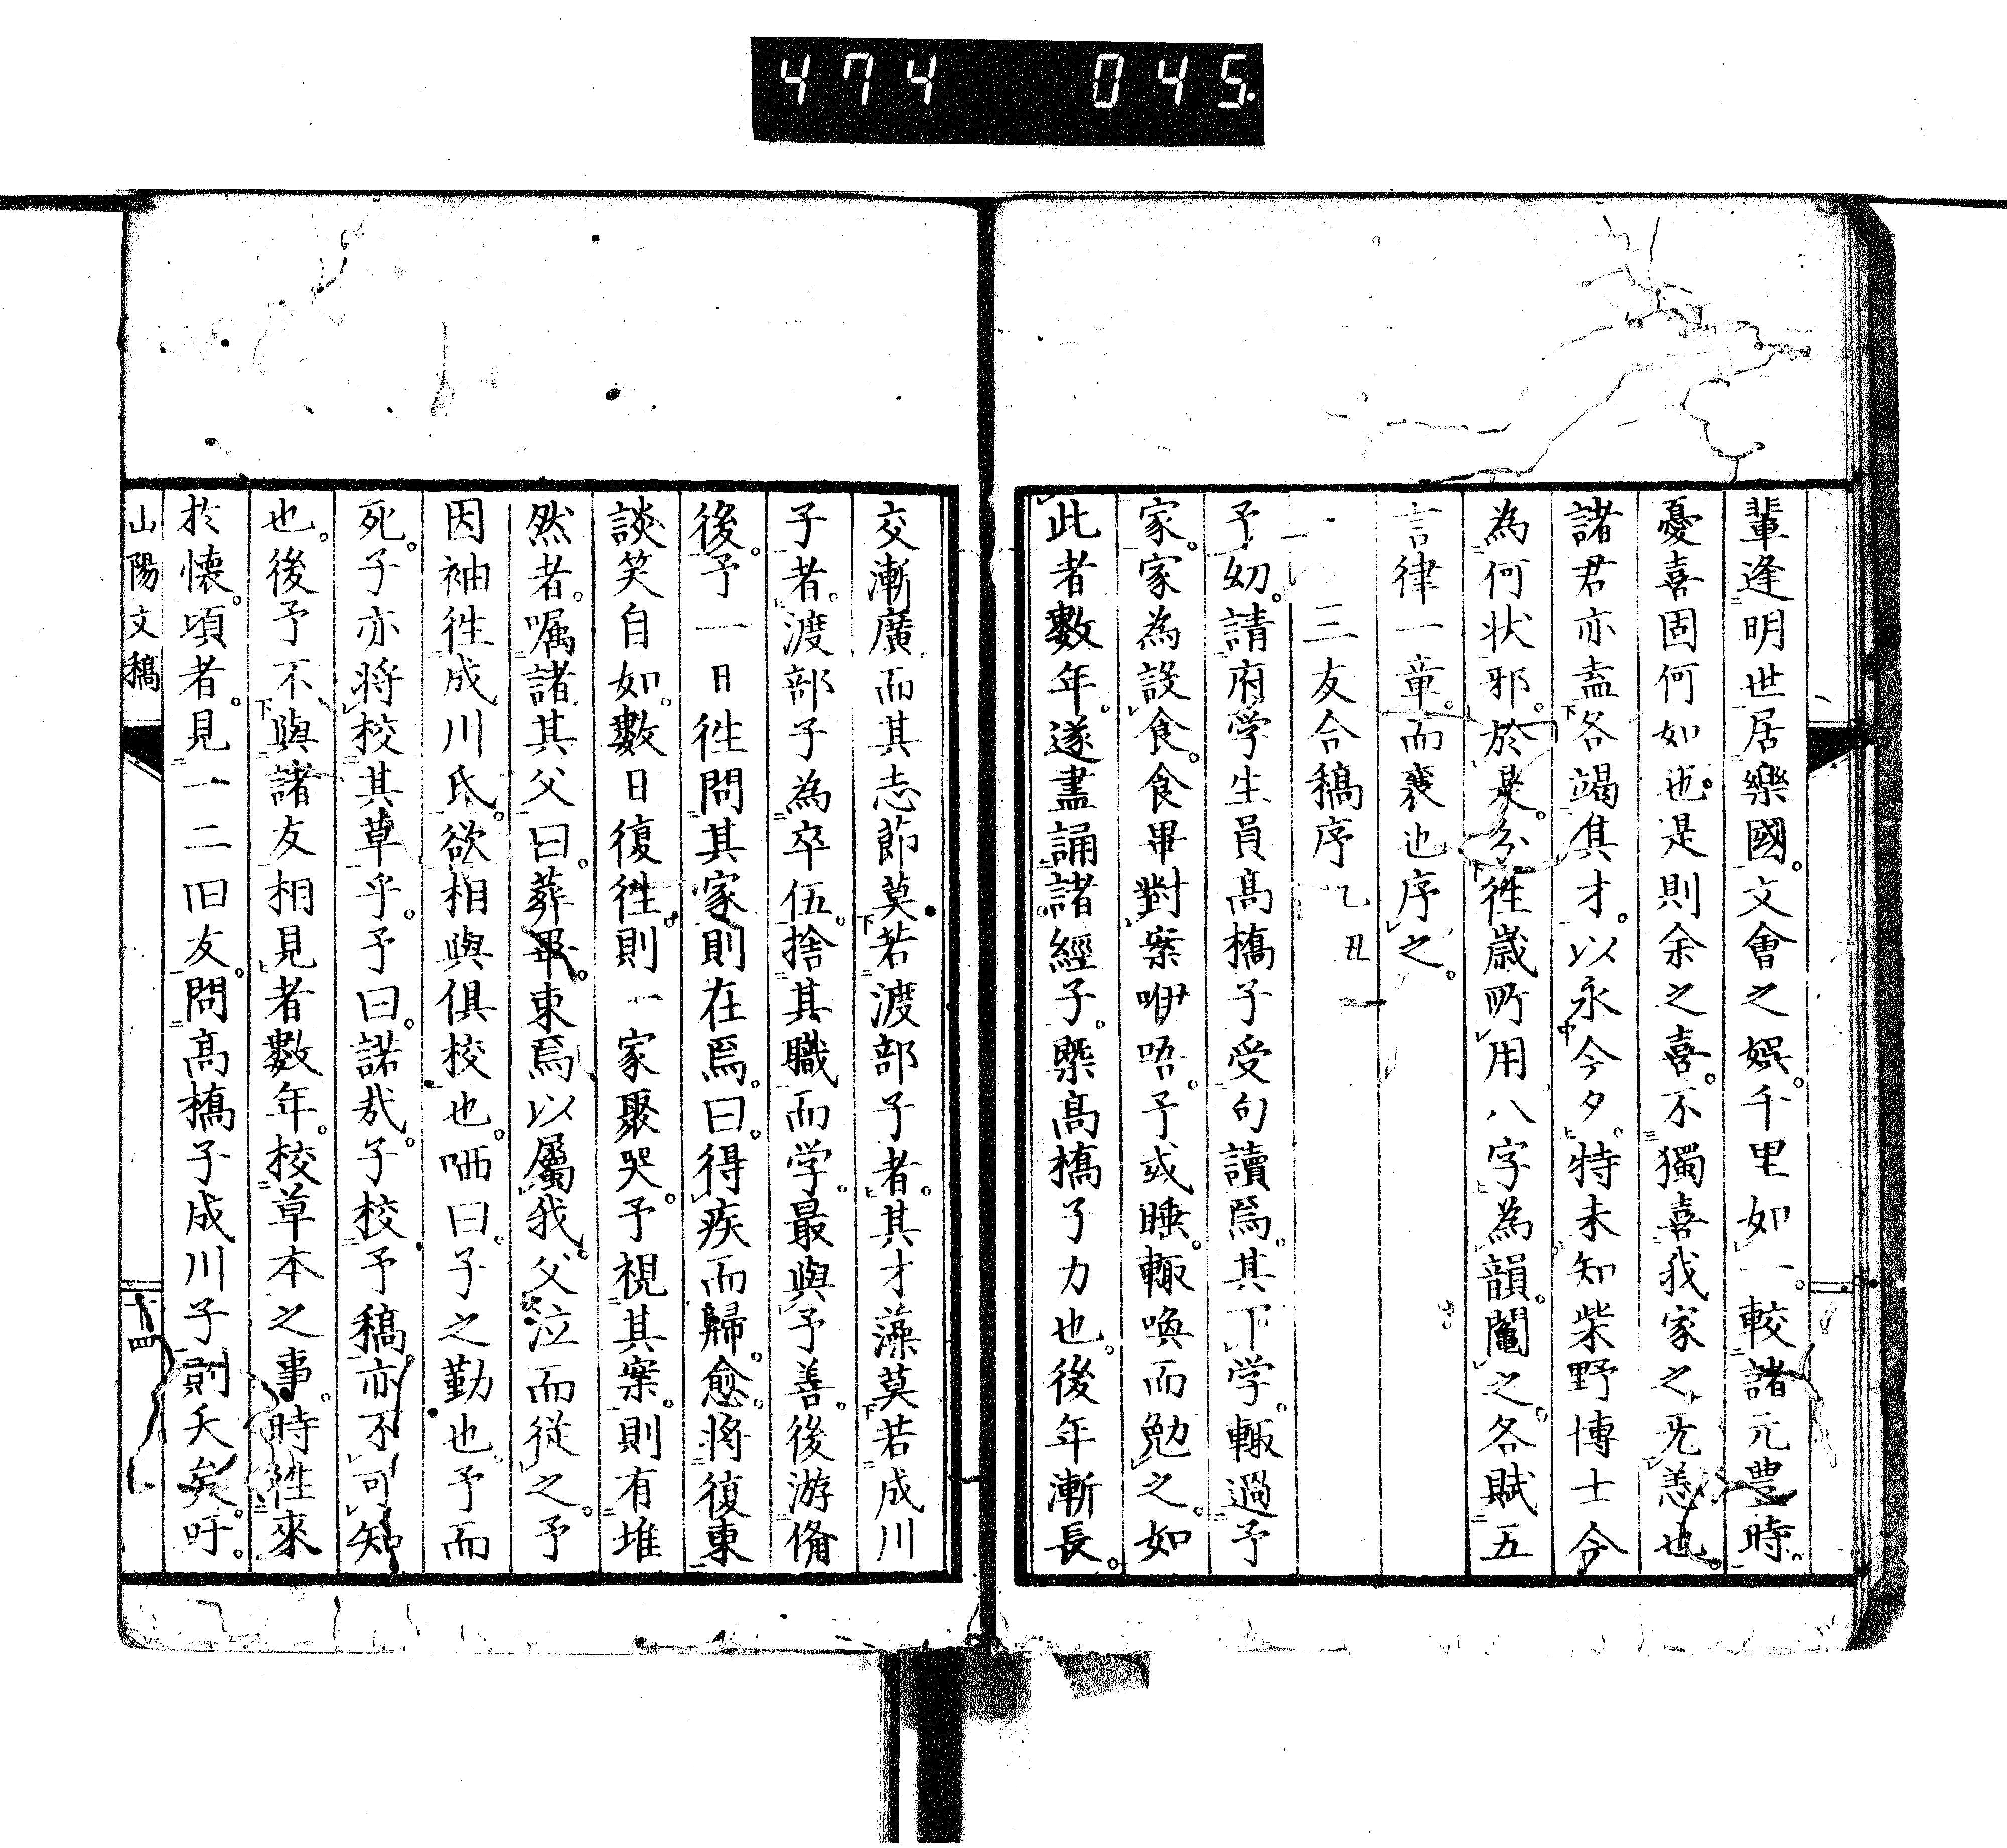 474 045.
輩逢明世居樂國。文會之娯。千里如一。較諸元豊時。
憂喜固何如也。是則余之喜。不獨喜我家之无恙也。
諸君亦盍各竭其才。以永今夕。特未知柴野博士今
為何状邪。於是。分徃歳所用八字為韻。鬮之。各賦五
言律一章。而襄也序之。
三友合稿序 乙丑
予幼。請府学生員髙橋子受句讀焉。其下学。輙過予
家。家為設食。食畢對案咿唔。予或睡。輙喚而勉之。如
此者數年。遂盡誦諸經子。槩髙橋子力也。後年漸長。
交漸廣而其志節莫若渡部子者。其才藻莫若成川
子者。渡部子為卒伍。捨其職而学。最與予善。後游備
後。予一日徃問其家則在焉。曰。得疾而歸。愈。將復東
談笑自如。數日復徃。則一家聚哭。予視其案。則有堆
然者。嘱諸其父曰。葬畢。東焉以屬我。父泣而従之。予
因袖徃成川氏。欲相與俱校也。哂曰。子之勤也。予而
死。子亦將校其草乎。予曰。諾哉。子校予稿。亦不可知
也。後予不與諸友相見者數年。校草本之事。時徃來
於懷。頃者。見一二旧友。問髙橋子成川子則夭矣。吁。
山陽文稿
十四